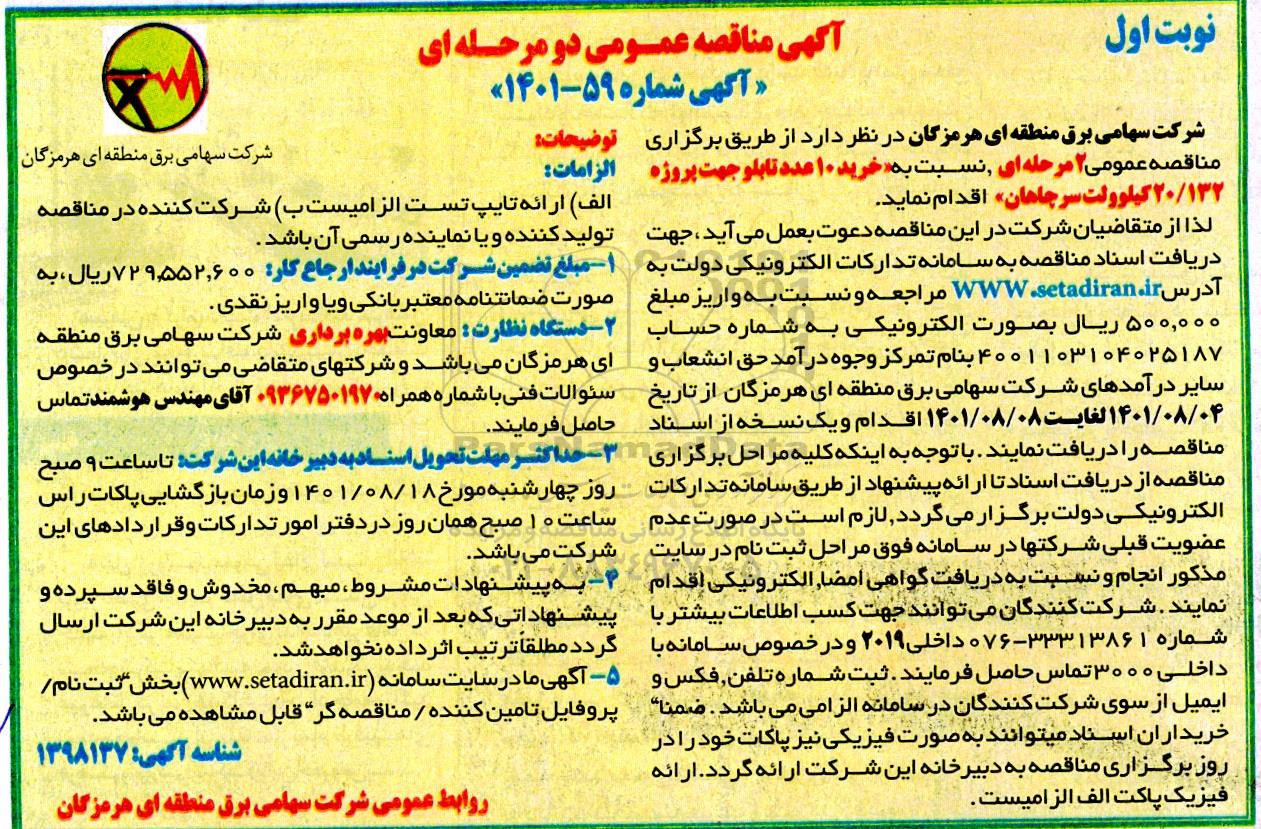 نوبت اول
آگهی مناقصه عمومی دو مرحله ای
«آگهی شماره ۵۹-۱۴۰۱»
شرکت سهامی برق منطقه ای هرمزگان
شرکت سهامی برق منطقه ای هرمزگان در نظر دارد از طریق برگزاری
مناقصه عمومی ۲ مرحله ای ,نسبت به «خرید ۱۰ عدد تابلو جهت پروژه
۲۰/۱۳۲ کیلوولت سرچاهان» اقدام نماید.
لذا از متقاضیان شرکت در این مناقصه دعوت بعمل می آید، جهت
دریافت اسناد مناقصه به سامانه تدارکات الکترونیکی دولت به
آدرس WWW.setadiran.ir مراجعه و نسبت به واریز مبلغ
۵۰۰,۰۰۰ ریال بصورت الکترونیکی به شماره حساب
۴۰۰۱۱۰۳۱۰۴۰۲۵۱۸۷ بنام تمرکز وجوه درآمد حق انشعاب و
سایر درآمدهای شرکت سهامی برق منطقه ای هرمزگان از تاریخ
۱۴۰۱/۰۸/۰۴ لغایت ۱۴۰۱/۰۸/۰۸ اقدام و یک نسخه از اسناد
مناقصه را دریافت نمایند. با توجه به اینکه کلیه مراحل برگزاری
مناقصه از دریافت اسناد تا ارائه پیشنهاد از طریق سامانه تدارکات
الکترونیکی دولت برگزار می گردد, لازم است در صورت عدم
عضویت قبلی شرکتها در سامانه فوق مراحل ثبت نام در سایت
مذکور انجام و نسبت به دریافت گواهی امضا, الکترونیکی اقدام
نمایند. شرکت کنندگان می توانند جهت کسب اطلاعات بیشتر با
شماره ۳۳۳۱۳۸۶۱-۰۷۶ داخلی ۲۰۱۹ و در خصوص سامانه با
داخلی ۳۰۰۰ تماس حاصل فرمایند. ثبت شماره تلفن, فکس و
ایمیل از سوی شرکت کنندگان در سامانه الزامی می باشد. ضمنا"
خریداران اسناد میتوانند به صورت فیزیکی نیز پاکات خود را در
روز برگزاری مناقصه به دبیرخانه این شرکت ارائه گردد. ارائه
فیزیک پاکت الف الزامیست.
توضیحات:
الزامات:
الف) ارائه تایپ تست الزامیست ب) شرکت کننده در مناقصه
تولید کننده و یا نماینده رسمی آن باشد.
۱-مبلغ تضمین شرکت در فرایند ارجاع کار: ۷۲۹,۵۵۲,۶۰۰ ریال، به
صورت ضمانتنامه معتبر بانکی ویا واریز نقدی.
۲-دستگاه نظارت: معاونت بهره برداری شرکت سهامی برق منطقه
ای هرمزگان می باشد و شرکتهای متقاضی می توانند در خصوص
سئوالات فنی با شماره همراه ۰۹۳۶۷۵۰۱۹۷۰ آقای مهندس هوشمند تماس
حاصل فرمایند.
۳-حداکثر مهلت تحویل اسناد به دبیرخانه این شرکت: تا ساعت ۹ صبح
روز چهارشنبه مورخ ۱۴۰۱/۰۸/۱۸ و زمان بازگشایی پاکات راس
ساعت ۱۰ صبح همان روز در دفتر امور تدارکات و قراردادهای این
شرکت می باشد.
۴- به پیشنهادات مشروط، مبهم، مخدوش و فاقد سپرده و
پیشنهاداتی که بعد از موعد مقرر به دبیرخانه این شرکت ارسال
گردد مطلقاً ترتیب اثر داده نخواهد شد.
۵-آگهی ما در سایت سامانه (www.setadiran.ir) بخش "ثبت نام/
پروفایل تامین کننده / مناقصه گر" قابل مشاهده می باشد.
شناسه آگهی: ۱۳۹۸۱۳۷
روابط عمومی شرکت سهامی برق منطقه ای هرمزگان